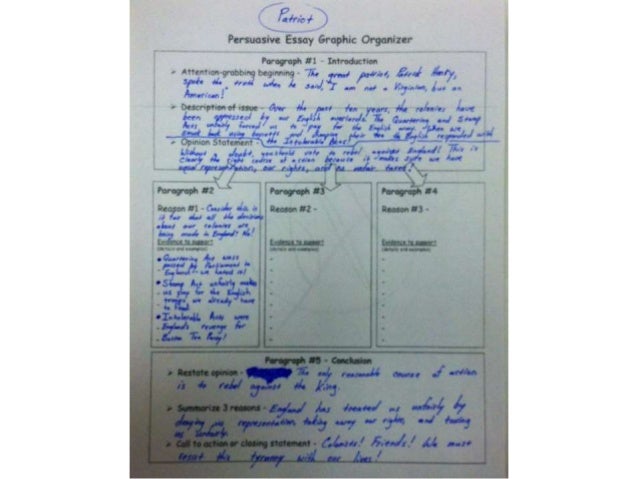 Patriot
Persuasive Essay Graphic Organizer
Paragraph #1 - Introduction
Attention-grabbing beginning - The great patriot, Patrick Henry,
spoke the truth when he said, I am not a Virginian, but an
American!
Description of issue - Over the past ten years, the colonies have
been oppressed by our English overlords. The Quartering and Stamp
Acts unfairly forced us to pay for the English army. When we
back using boycotts and dumping their tea the English responded with
Opinion Statement - the Intolerable Acts!
Without a doubt, you should vote to rebel against England! This is
clearly the right course of action because it makes sure we have
equal representation, our rights, and no unfair taxes!
Paragraph #2
Reason #1 - Consider this, is
it fair that all the decisions
about our colonies are
being made in England? No!
Evidence to support
(details and examples)
Quartering Act was
passed by Parliament in
England - we hated it!
Stamp Act unfairly makes
us pay for the English
we already have
to
Intolerable Acts were
England's revenge for
Boston Tea Party!
Paragraph #3
Reason #2 -
Evidence to support
(details and examples)
Paragraph #4
Reason #3 -
Evidence to support
(details and examples)
Paragraph #5 - Conclusion
Restate opinion - The only reasonable course of action
is to rebel against the King.
Summarize 3 reasons - England has treated us unfairly by
denying us representation, taking away our rights, and taxing
us unfairly.
Call to action or closing statement - Colonists! Friends! We must
resist this tyranny with our lives!